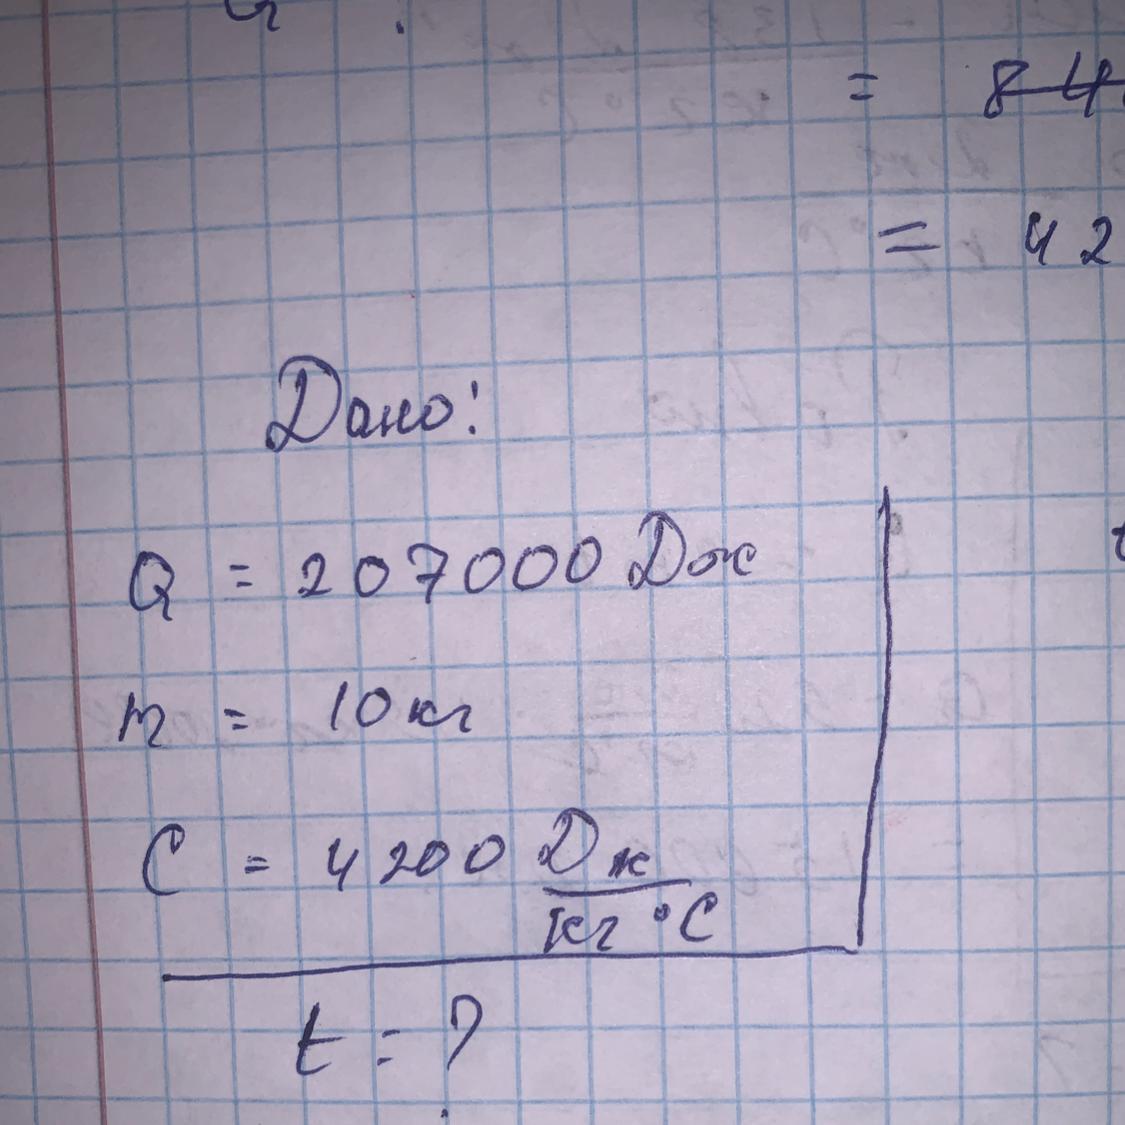 = 84
= 42
Дано:
Q = 207000 Дж
m = 10 кг
C = 4200 Дж
кг °C
t = ?